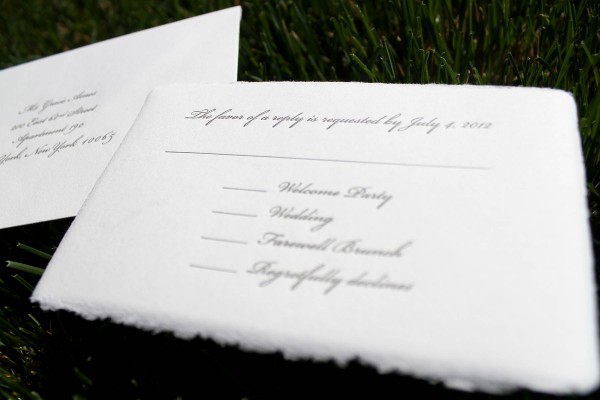 Ms. Grace Ames
200 East 62nd Street
Apartment 190
York, New York 10065
The favor of a reply is requested by July 4, 2012
Welcome Party
Wedding
Farewell Brunch
Regretfully declines